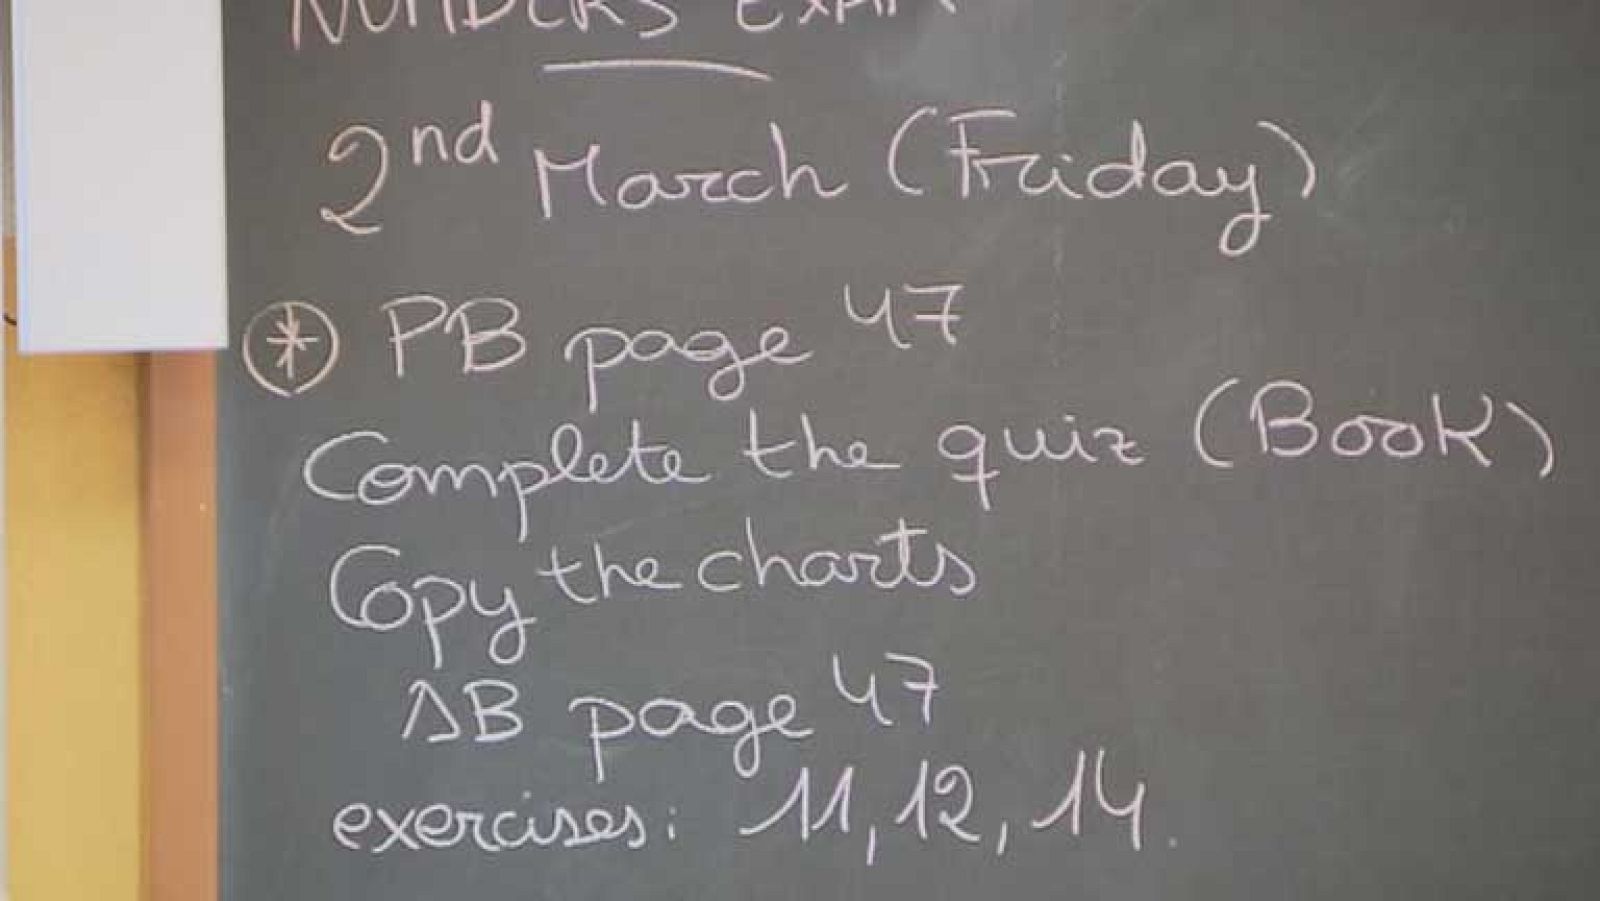 NUMBERS EXAM
2nd March (Friday)
* PB page 47
Complete the quiz (Book)
Copy the charts
AB page 47
exercises: 11, 12, 14.